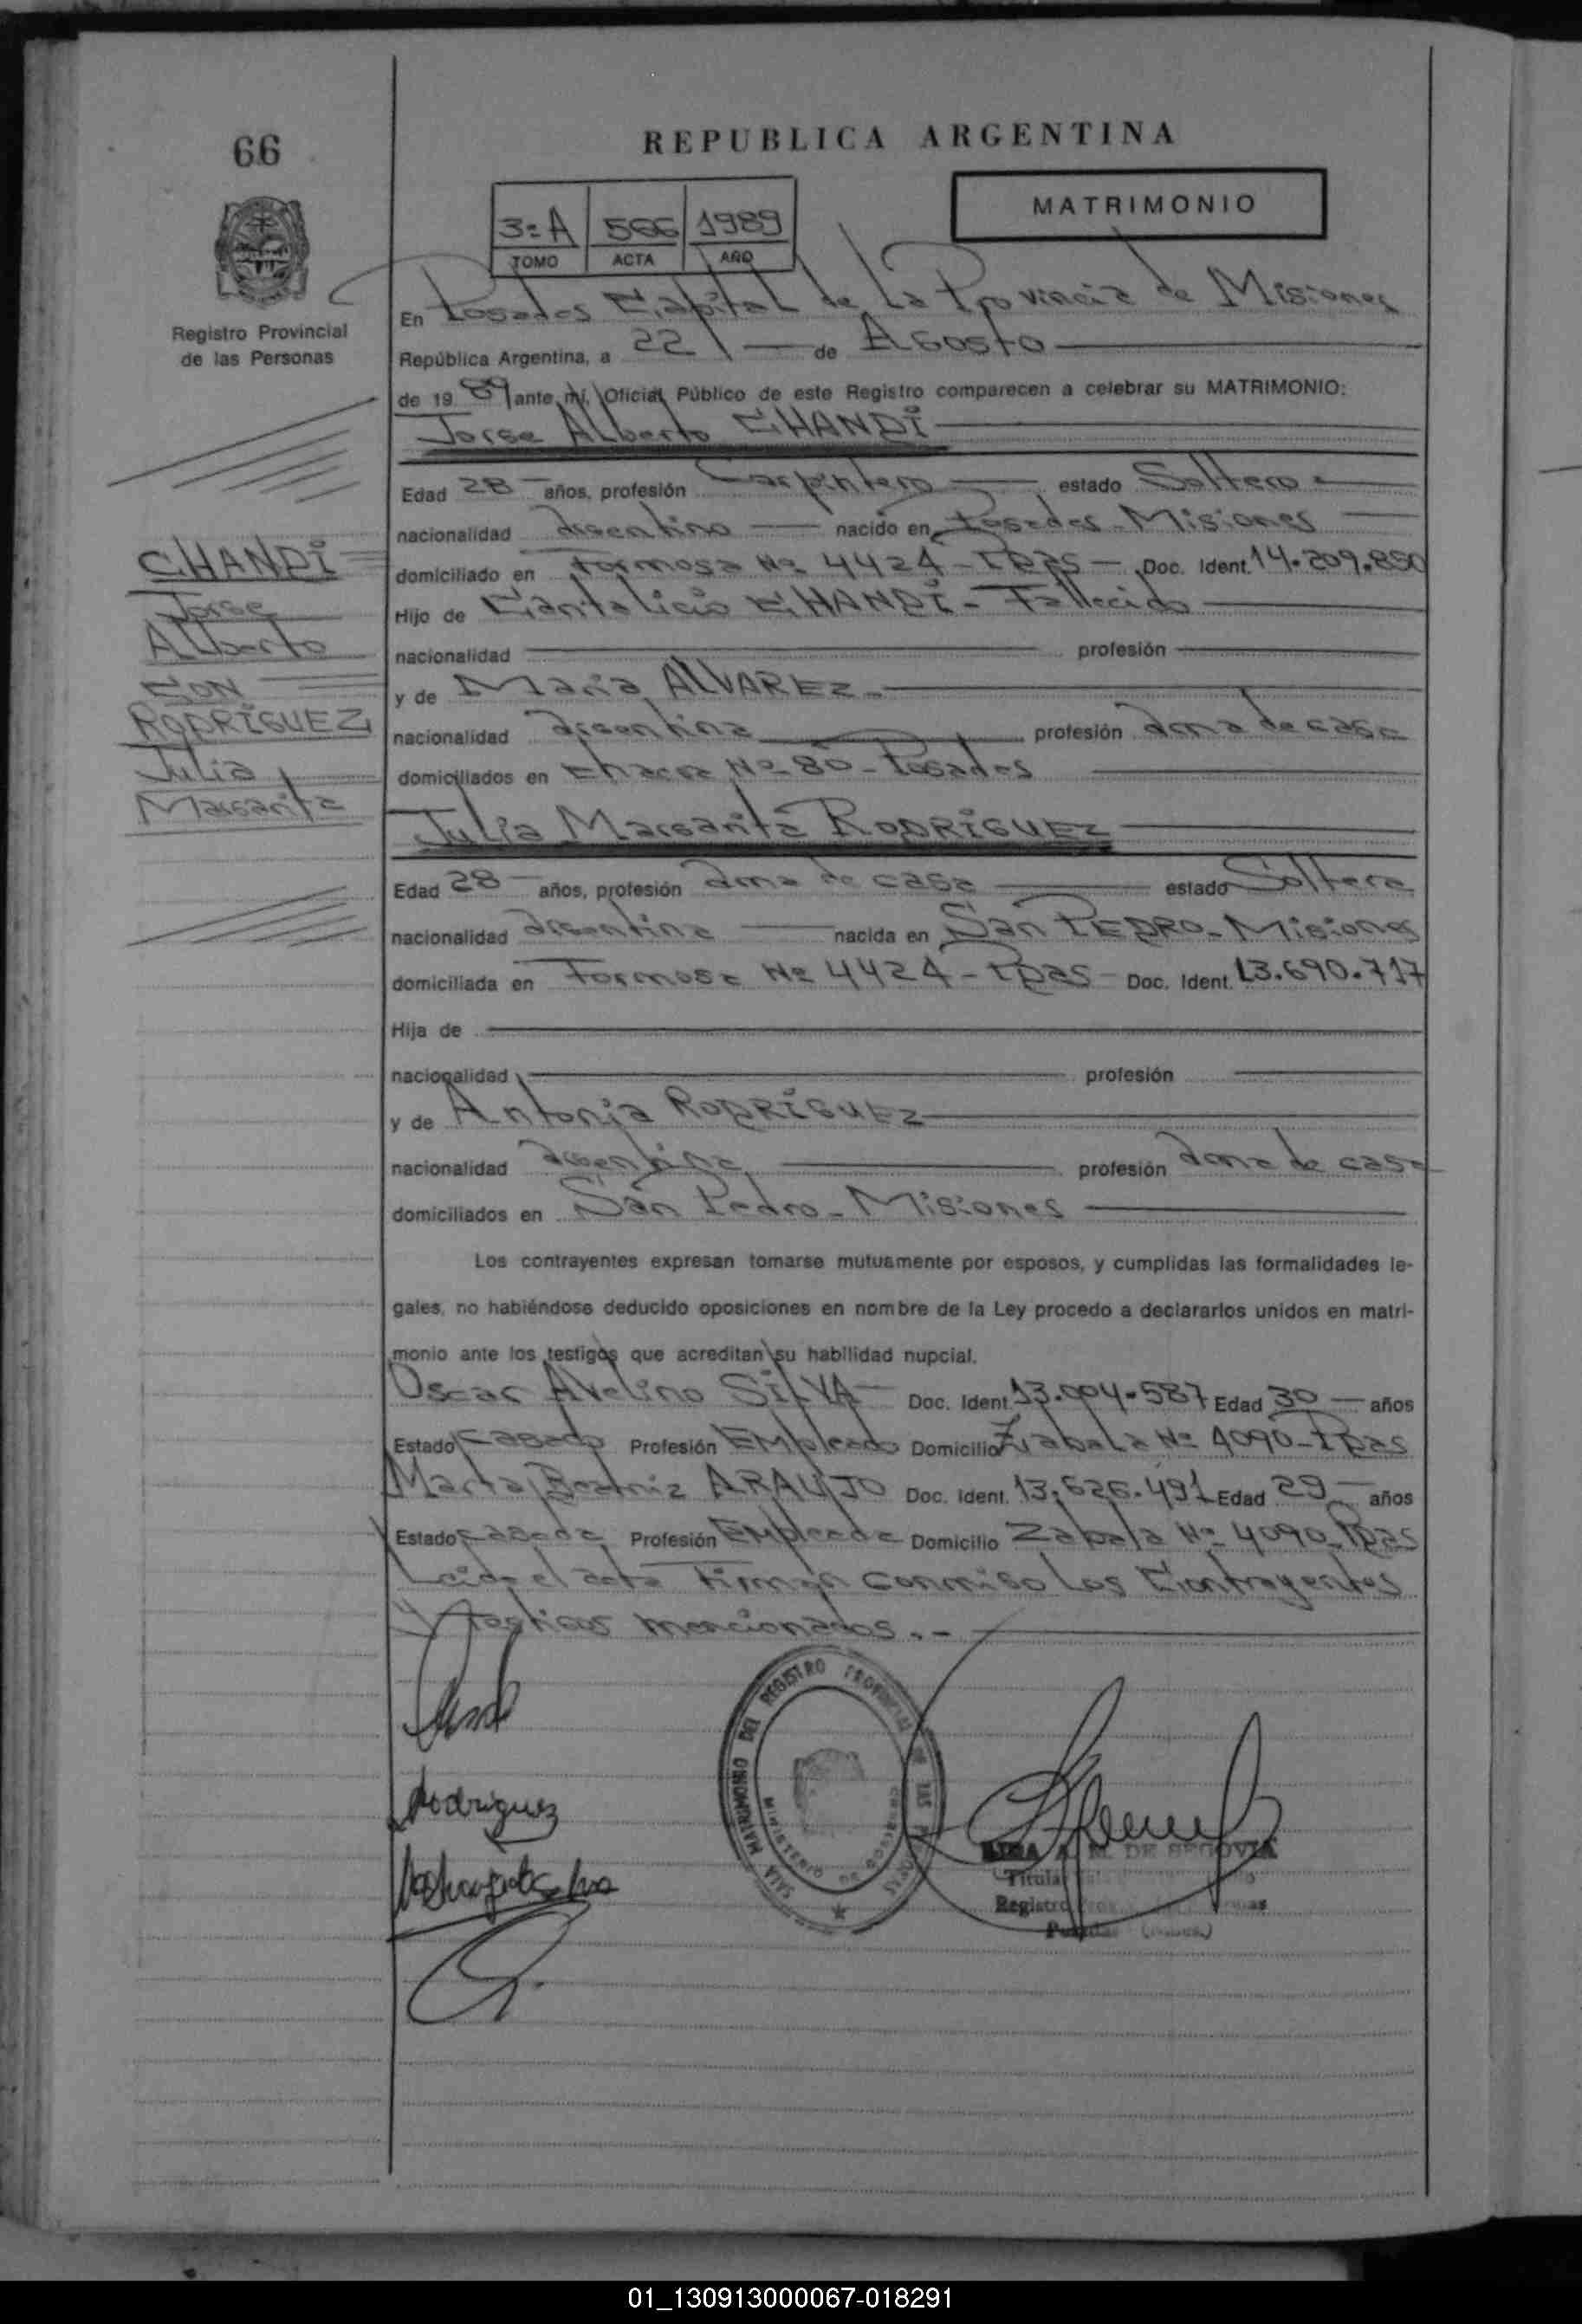 66
REPUBLICA ARGENTINA
MATRIMONIO
3=A 566 1989
TOMO ACTA AÑO
Registro Provincial
de las Personas
En Posadas Capital de La Provincia de Misiones
República Argentina, a 22 de Agosto
de 19 89 ante mí, Oficial Público de este Registro comparecen a celebrar su MATRIMONIO:
Jorge Alberto CHANDI
Edad 28 años, profesión Carpintero estado Soltero
nacionalidad argentino nacido en Posadas-Misiones
domiciliado en Formosa Nº 4424-Ppas Doc. Ident. 14.209.850
Hijo de Cantalicio CHANDI-Fallecido
nacionalidad profesión
y de Maria ALVAREZ
nacionalidad argentina profesión ama de casa
domiciliados en Chacra Nº 80-Posadas
CHANDI
Jorge
Alberto
CON
RODRIGUEZ
Julia
Margarita
Julia Margarita RODRIGUEZ
Edad 28 años, profesión ama de casa estado Soltera
nacionalidad argentina nacida en San PEDRO-Misiones
domiciliada en Formosa Nº 4424-Ppas Doc. Ident. 13.690.717
Hija de
nacionalidad profesión
y de Antonia RODRIGUEZ
nacionalidad argentina profesión ama de casa
domiciliados en San Pedro-Misiones
Los contrayentes expresan tomarse mutuamente por esposos, y cumplidas las formalidades le-
gales, no habiéndose deducido oposiciones en nombre de la Ley procedo a declararlos unidos en matri-
monio ante los testigos que acreditan su habilidad nupcial.
Oscar Avelino SILVA Doc. Ident. 13.004.587 Edad 30 años
Estado casado Profesión Empleado Domicilio Zabala Nº 4090-Ppas
Marta Beatriz ARAUJO Doc. Ident. 13.626.491 Edad 29 años
Estado casada Profesión Empleada Domicilio Zabala Nº 4090-Ppas
Leida el acta Firman conmigo Los Contrayentes
y testigos mencionados.-
Rodriguez
SALA MATRIMONIO DEL REGISTRO PROVINCIAL DE LAS PERSONAS
MINISTERIO DE GOBIERNO
A. M. DE SEGOVIA
Titular
Registro
01_130913000067-018291